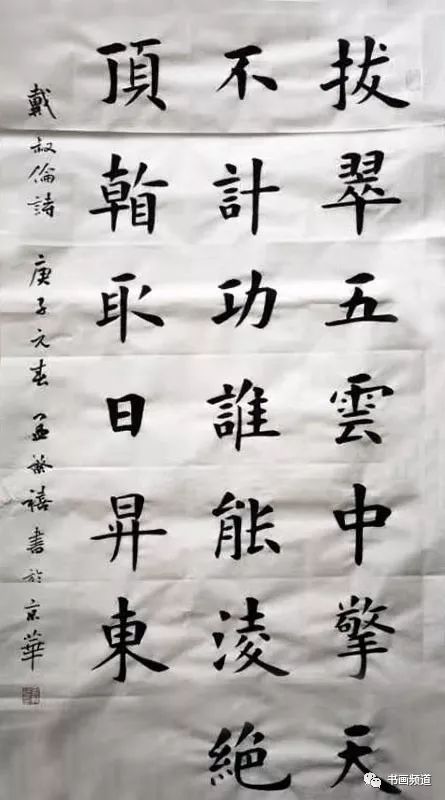 拔翠五雲中擎天
不計功誰能淩絕
頂看取日昇東
戴叔倫詩 庚子元春 孟繁禧書於京華
书画频道